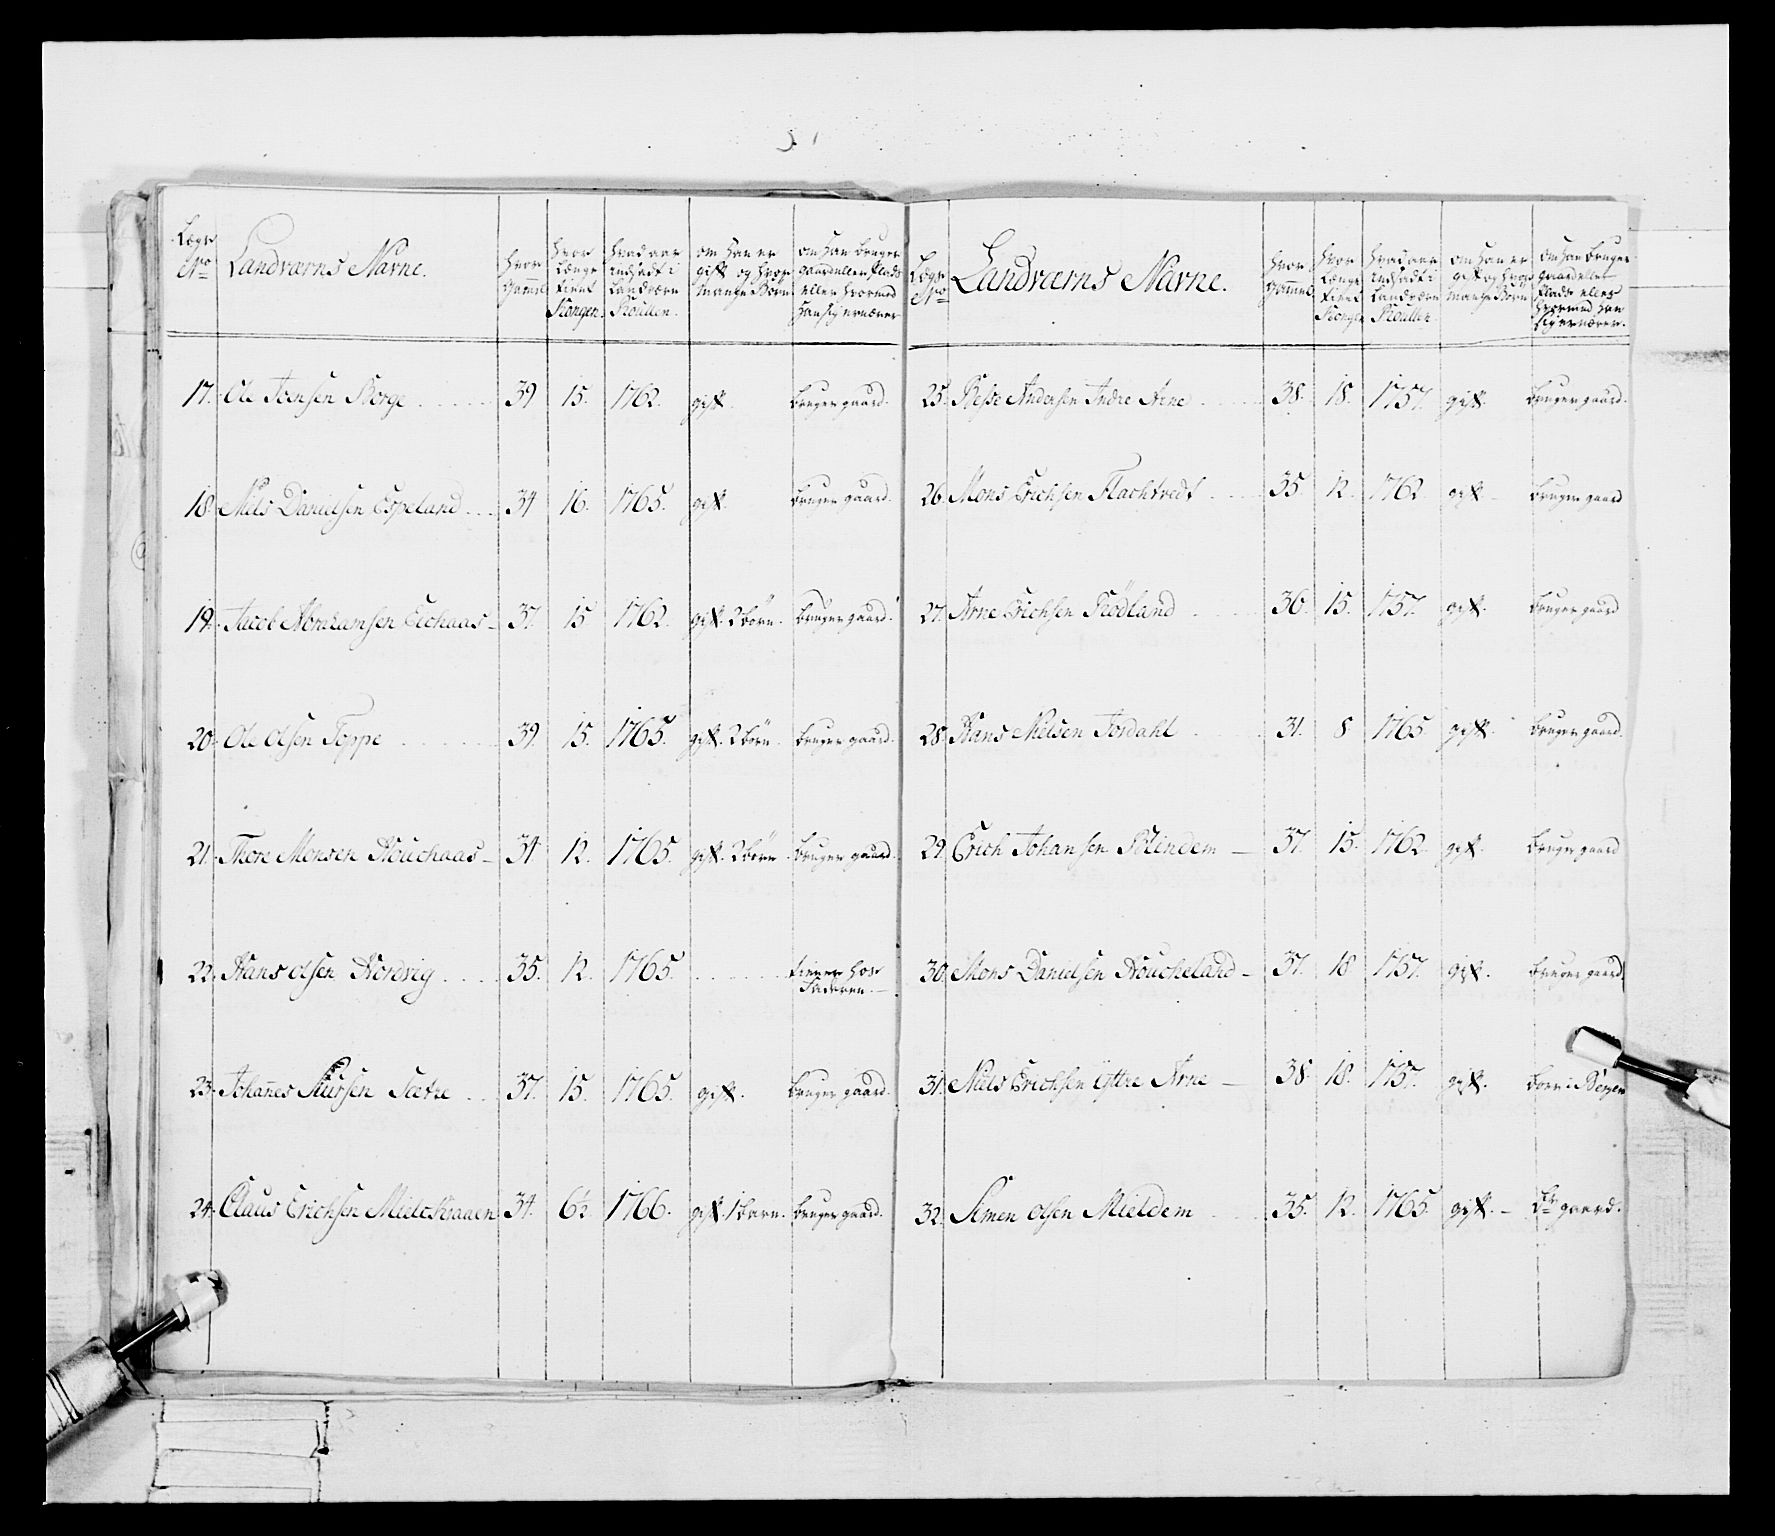 Lægs No
Landværns Navne.
Hvor Gamel
Hvor Længe tient Kongen.
Hvad aar indsadt i Landværn Roullen.
om Han er gift og hvor mange Børn
om Han bruger gaard eller Plads eller hvormed Han sig ernærer
17. Ole Joensen Borge 39 15. 1762. gift. bruger gaard.
18. Niels Danielsen Espeland 34 16. 1765. gift. bruger gaard.
19. Jacob Abrahamsen Eichaas 37. 15 1762. gift. 2 børn. bruger gaard.
20. Ole Olsen Toppe 39. 15. 1765. gift. 2 børn. bruger gaard.
21. Thore Monsen Houchaas 34 12. 1765. gift. 2 børn. bruger gaard.
22. Hans Olsen Hordvig 35. 12. 1765. tiener hos Faderen.
23. Johañes Siursen Sætre 37. 15. 1765. gift. bruger gaard.
24. Claus Erichsen Mielckraaen 34. 6½ 1766. gift. 1 barn. bruger gaard.
Lægs No
Landværns Navne.
Hvor Gam̄el
Hvor Længe tient Kongen
Hvad aar indsadt i Landværn Roullen.
om Han er gift og hvor mange Børn
om Han bruger gaard eller Plads eller hvormed Han sig ernærer.
25. Besse Andersen Indre Arne 38. 18. 1757. gift. bruger gaard.
26. Mons Erichsen Flachtvedt 35. 12. 1762 gift bruger gaard
27. Arne Erichsen Rödland 36. 15. 1757. gift. bruger gaard
28. Hans Nielsen Jordahl 31. 8 1765 gift. bruger gaard.
29. Erich Johansen Blindem 37 15. 1762 gift. bruger gaard
30. Mons Danielsen Houcheland 37. 18 1757. gift. bruger gaard
31. Niels Erichsen Yttre Arne 38. 18. 1757. gift. boer i Bergen
32. Simen Olsen Mieldem 35. 12. 1765. gift. br gaard.